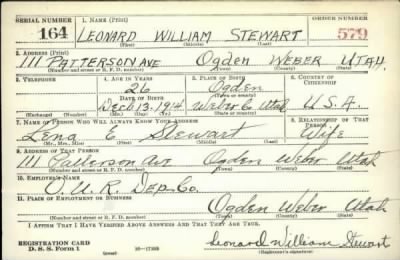 SERIAL NUMBER 1. NAME (Print) ORDER NUMBER
164 LEONARD WILLIAM STEWART 579
(First) (Middle) (Last)
2. ADDRESS (Print)
111 PATTERSON AVE Ogden WEBER UTAH
(Number and street or R. F. D. number) (Town) (County) (State)
3. TELEPHONE 4. AGE IN YEARS 5. PLACE OF BIRTH 6. COUNTRY OF CITIZENSHIP
26 Ogden
DATE OF BIRTH
Dec 13, 1914 Weber C Utah U.S.A.
(Exchange) (Number) (Mo.) (Day) (Yr.) (State or country)
7. NAME OF PERSON WHO WILL ALWAYS KNOW YOUR ADDRESS 8. RELATIONSHIP OF THAT PERSON
Lena E Stewart Wife
(Mr., Mrs., Miss) (First) (Middle) (Last)
9. ADDRESS OF THAT PERSON
111 Patterson Ave Ogden Weber Utah
(Number and street or R. F. D. number) (Town) (County) (State)
10. EMPLOYER'S NAME
O. U. R. Dep. Co.
11. PLACE OF EMPLOYMENT OR BUSINESS
Ogden Weber Utah
(Number and street or R. F. D. number) (Town) (County) (State)
I AFFIRM THAT I HAVE VERIFIED ABOVE ANSWERS AND THAT THEY ARE TRUE.
REGISTRATION CARD
D. S. S. Form 1 Leonard William Stewart
(over) (Registrant's signature)